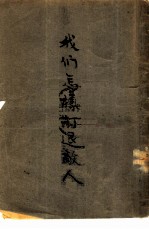 我们怎样打退敌人